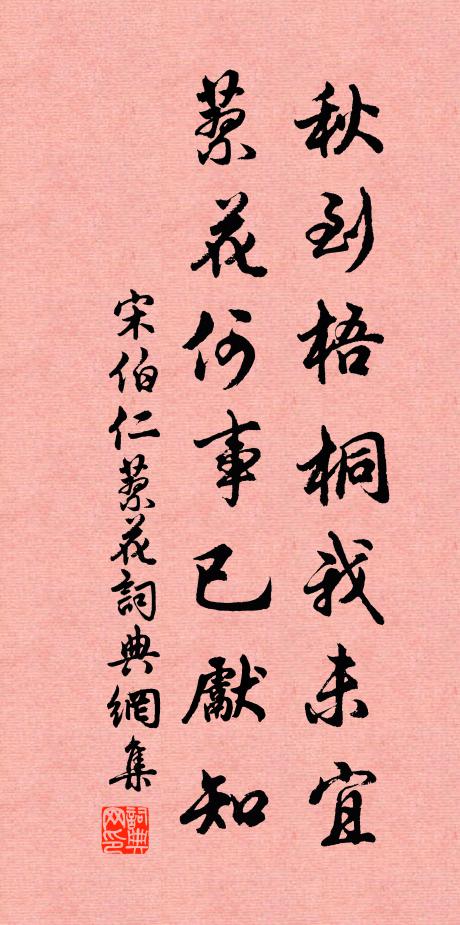 秋到梧桐我未宜
蓼花何事已獻知
宋伯仁蓼花詞典網集
詞典网印